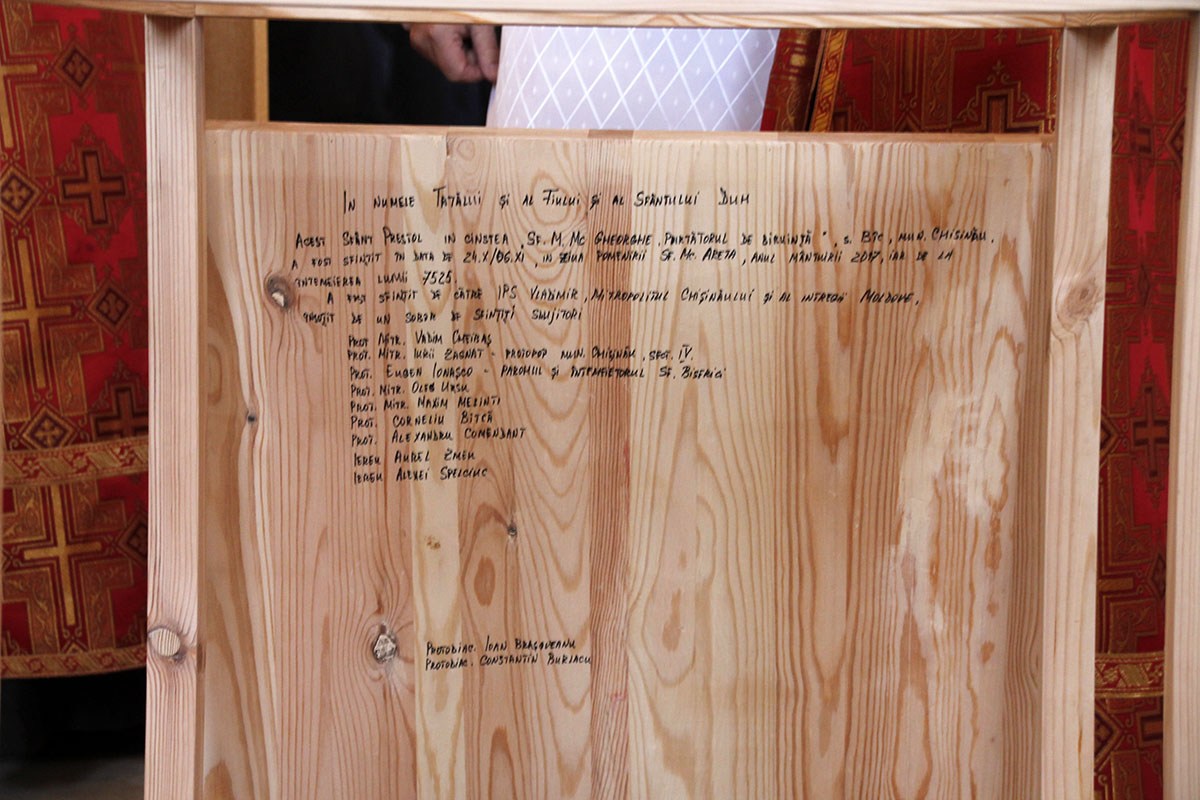 IN NUMELE TATĂLUI ȘI AL FIULUI ȘI AL SFÂNTULUI DUH
ACEST SFÂNT PRESTOL IN CINSTEA „SF. M. MC GHEORGHE, PURTĂTORUL DE BIRUINȚĂ", S. BÎC, MUN. CHIȘINĂU,
A FOST SFINȚIT ÎN DATA DE 24.X/06.XI, IN ZIUA POMENIRII SF. MC. ARETA, ANUL MÂNTUIRII 2017, IAR DE LA
INTEMEIEREA LUMII 7525.
A FOST SFINȚIT DE CĂTRE IPS VLADIMIR, MITROPOLITUL CHIȘINĂULUI ȘI AL INTREGII MOLDOVE,
DE UN SOBOR DE SFINȚIȚI SLUJITORI
PROT MITR. VADIM CHEIBAȘ
PROT. MITR. IURII ZAGNAT - PROTOPOP MUN. CHIȘINĂU, SECT. IV.
PROT. EUGEN IONAȘCO - PAROHUL ȘI SF. BISERICI
PROT. MITR. OLEG URSU
PROT. MITR. MAXIM MELINTI
PROT. CORNELIU BÎTCĂ
PROT. ALEXANDRU COMENDANT
IEREU AUREL ZMEU
IEREU ALEXEI
PROTODIAC. IOAN BRAȘOVEANU
PROTODIAC. CONSTANTIN BURLACU